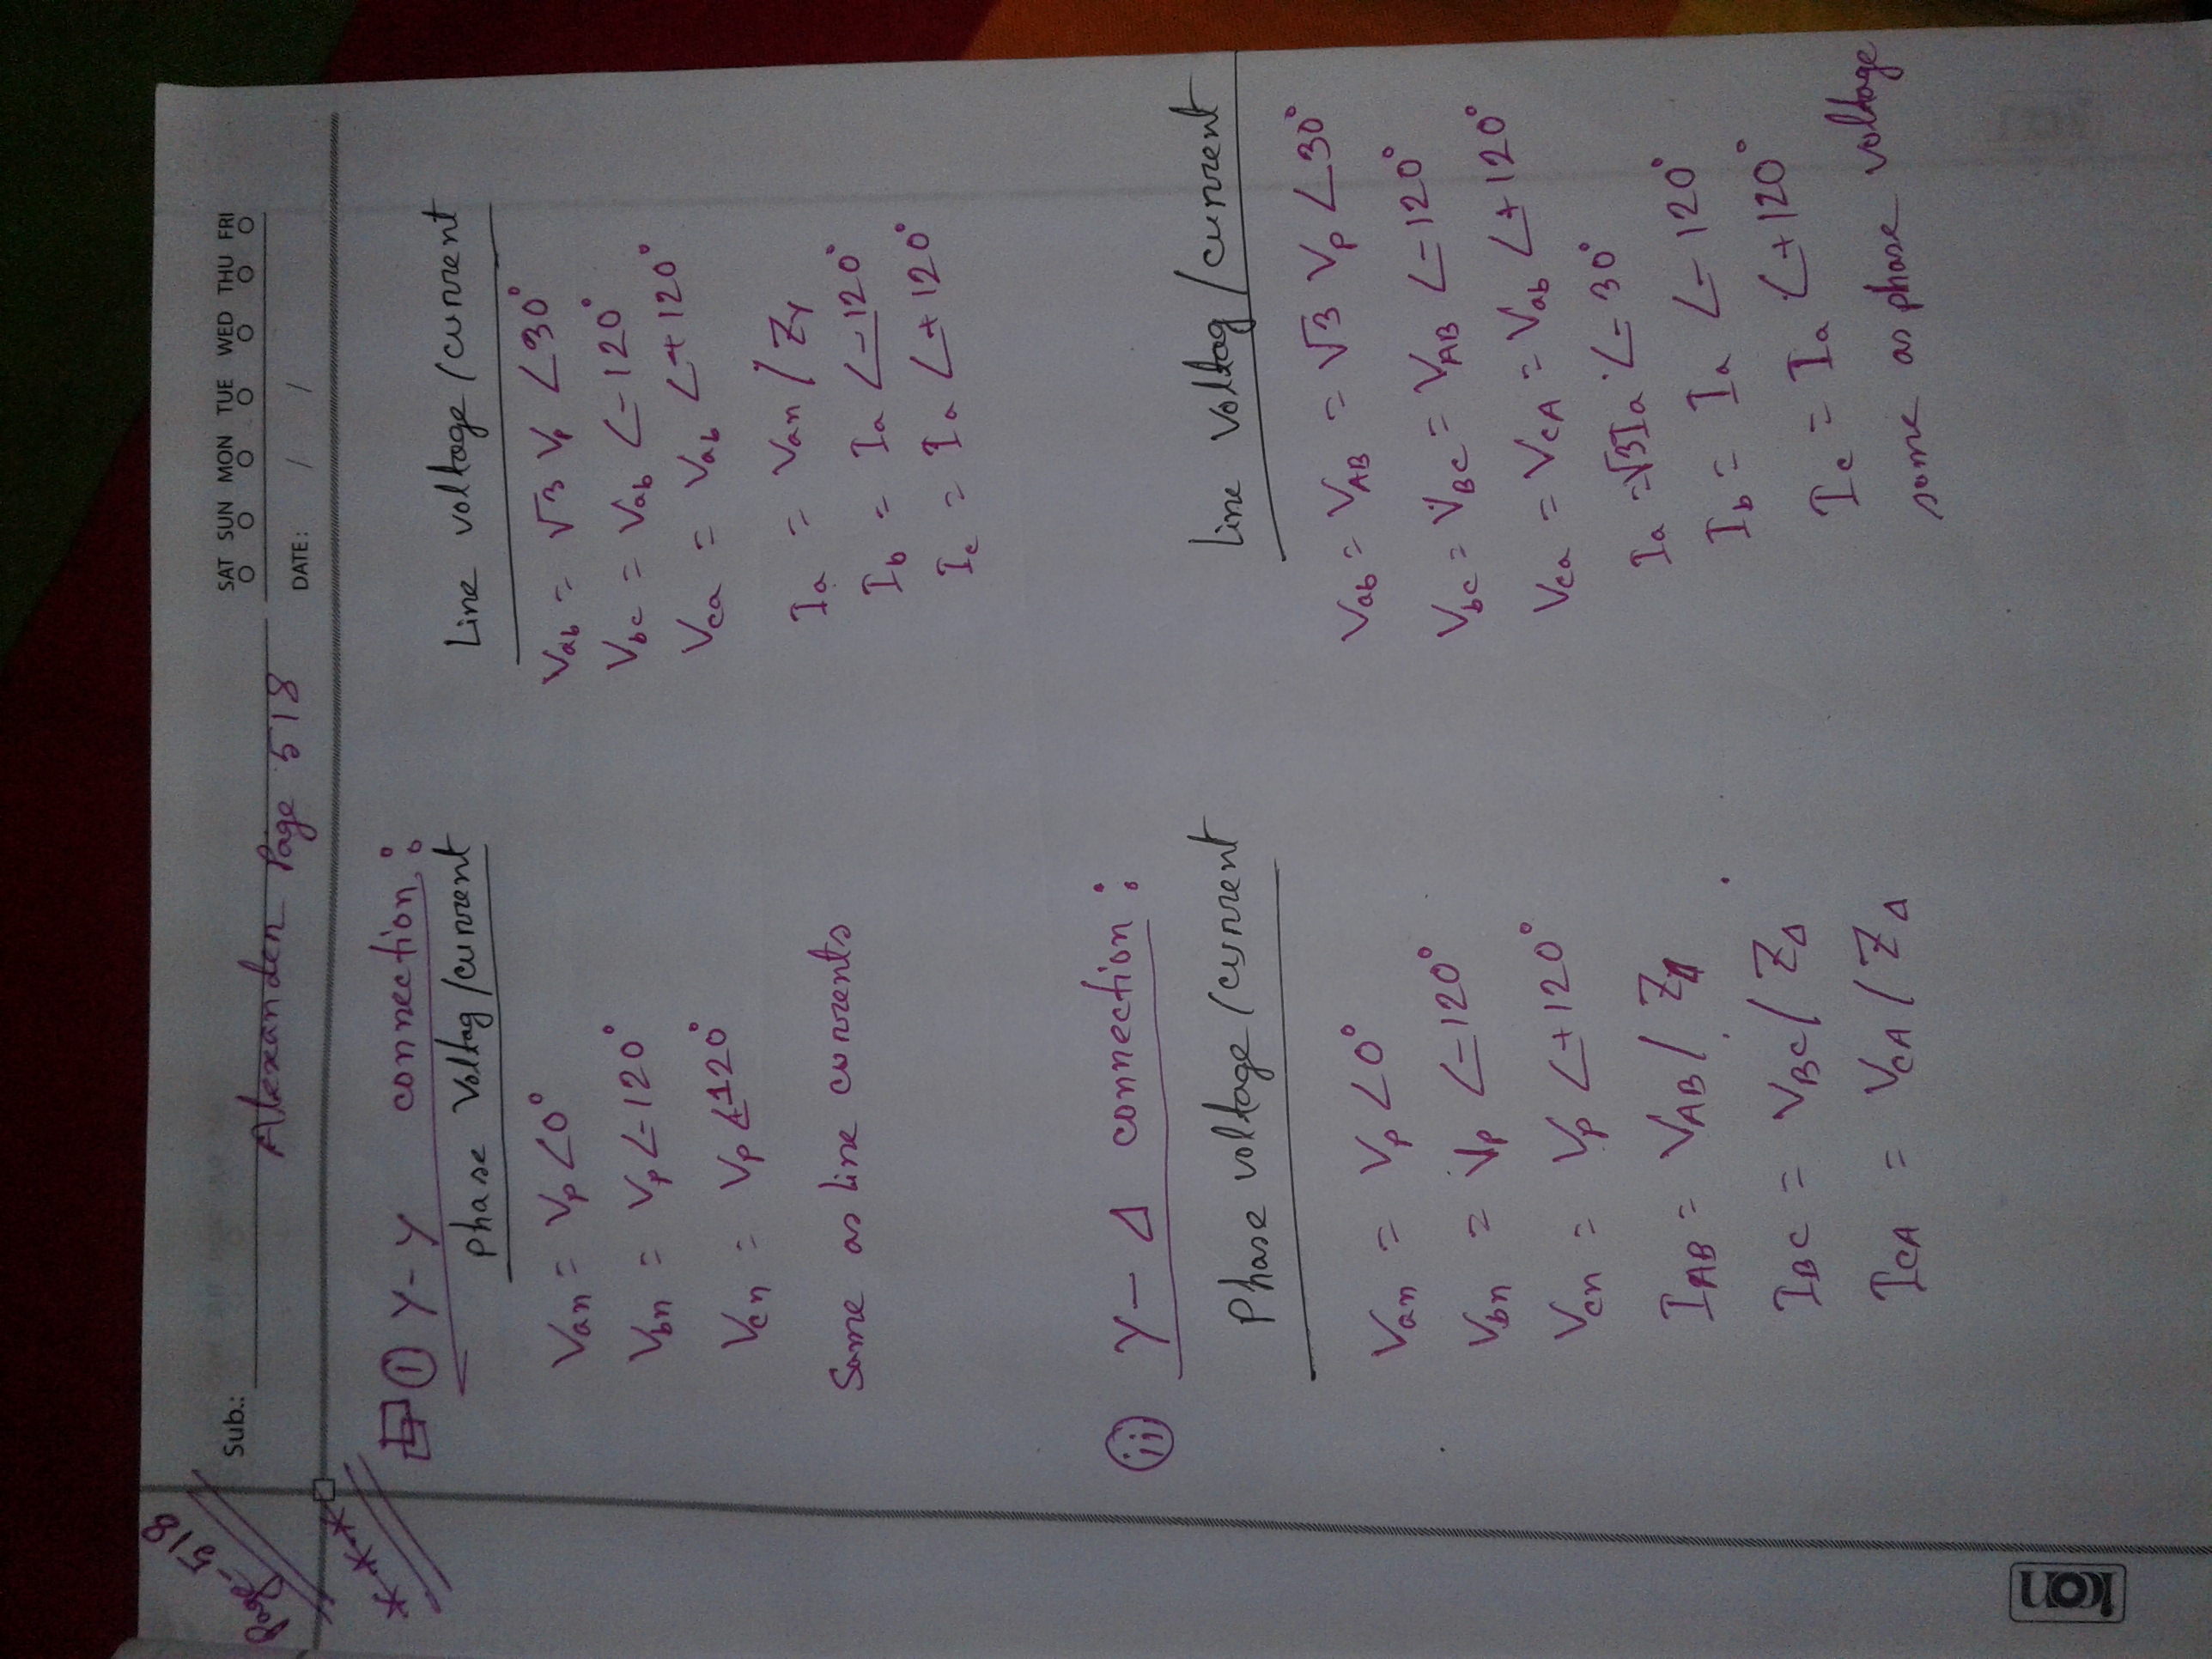 Page-518
***
Sub.:
SAT SUN MON TUE WED THU FRI
DATE: / /
Alexander Page 518
① Y-Y connection:
Phase Voltag/current
Van = Vp∠0°
Vbn = Vp∠-120°
Vcn = Vp∠+120°
Same as line currents
Line voltage/current
Vab = √3 Vp ∠30°
Vbc = Vab ∠-120°
Vca = Vab ∠+120°
Ia = Van / ZY
Ib = Ia ∠-120°
Ic = Ia ∠+120°
ii Y-Δ connection:
Phase voltage/current
Van = Vp∠0°
Vbn = Vp ∠-120°
Vcn = Vp ∠+120°
IAB = VAB / ZΔ
IBC = VBC / ZΔ
ICA = VCA / ZΔ
Line Voltag/current
Vab = VAB = √3 Vp ∠30°
Vbc = VBC = VAB ∠-120°
Vca = VCA = Vab ∠+120°
Ia = √3Ia ∠-30°
Ib = Ia ∠-120°
Ic = Ia ∠+120°
same as phase voltage
icon